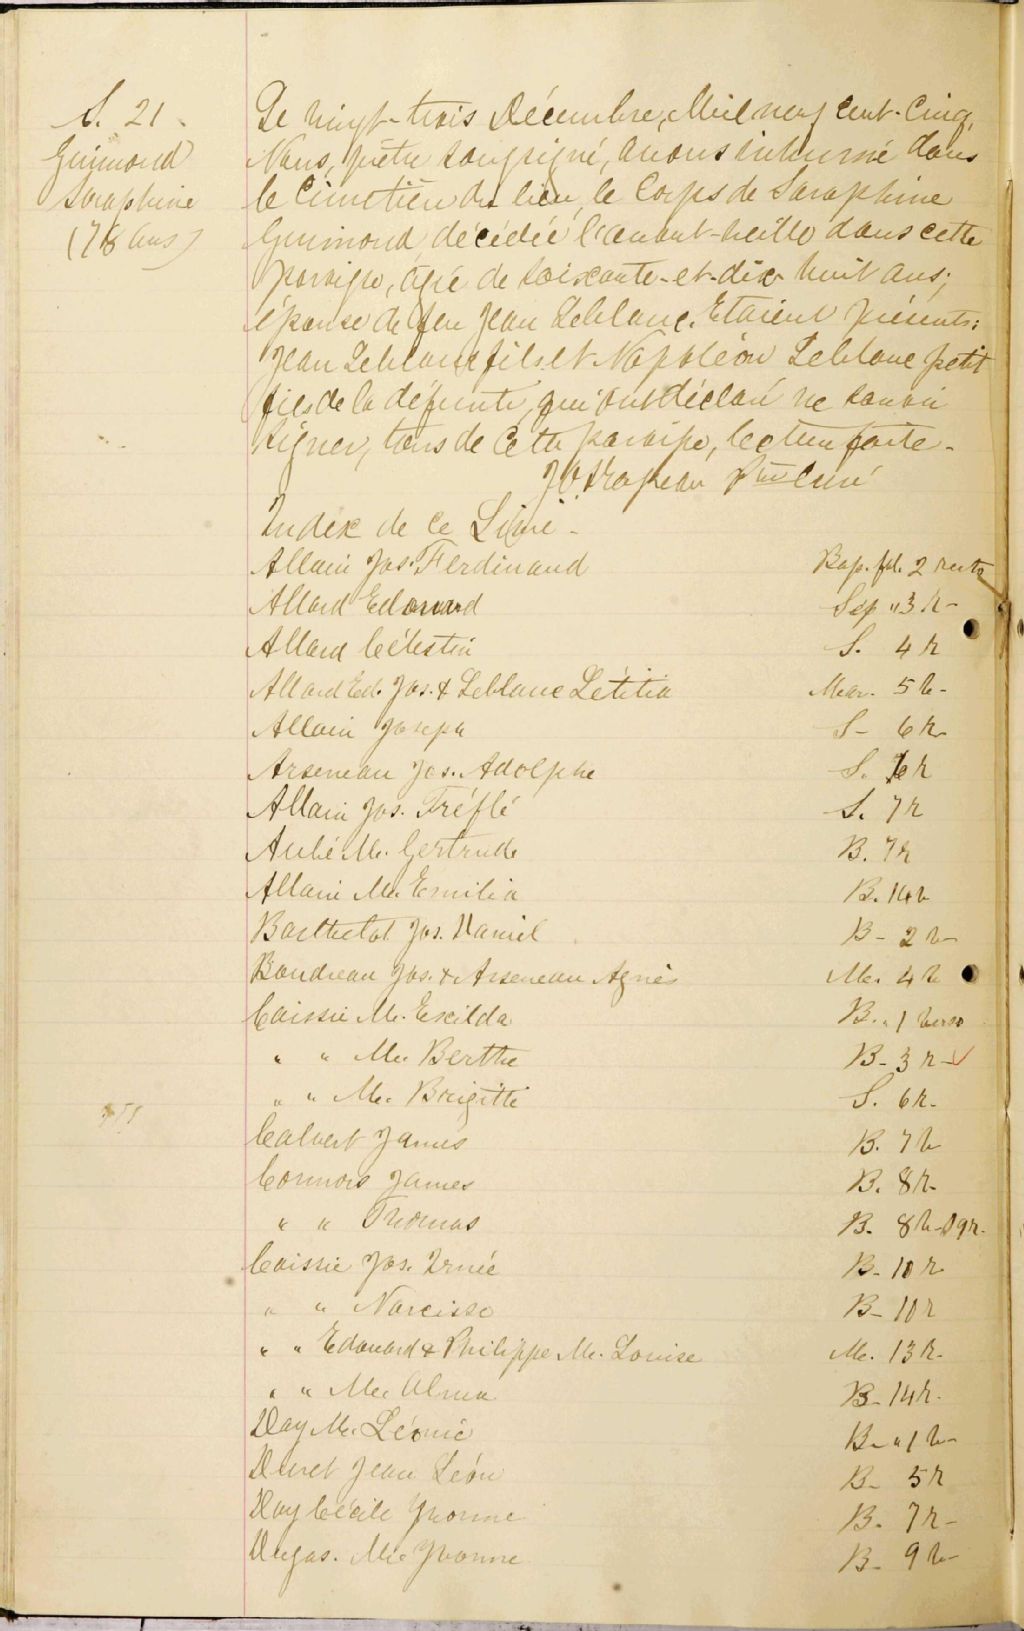 S. 21.
Guimond
Saraphine
(78 ans)
Le vingt-trois Décembre, Mil neuf cent-cinq,
Nous, prêtre soussigné, avons inhumé dans
le cimetière du lieu, le corps de Saraphine
Guimond, décédée l'avant-veille dans cette
paroisse, agée de soixante-et-dix huit ans,
épouse de feu Jean Leblanc. Etaient présents:
Jean Leblanc fils et Napoléon Leblanc petit
fils de la défunte, qui ont déclaré ne savoir
signer, tous de cette paroisse, lecture faite.-
Jos. Trapeau Ptre Curé
Index de ce Livre -
Allain Jos. Ferdinand Bap. fol. 2 recto
Allard Edouard Sep " 3 r-
Allard Célestin S. 4 r
Allard Ed. Jos. & Leblanc Létitia Mar. 5 v-
Allain Joseph S- 6 r-
Arseneau Jos. Adolphe S. 6 r
Allain Jos. Tréflé S. 7 r
Aubé M. Gertrude B. 7 r
Allain M. Emilia B. 14 v
Barthelot Jos. Daniel B- 2 v-
Boudreau Jos. & Arseneau Agnès M. 4 v
Caissie M. Exilda B. " 1 verso
" " M. Berthe B- 3 r-
" " M. Brigitte S. 6 r.
Calvert James B. 7 v
Connors James B. 8 r-
" " Thomas B. 8 v- 9 r-
Caissie Jos. Irnée B- 10 r
" " Narcisse B- 10 r
" " Edouard & Philippe M. Louise M. 13 r-
" " M. Alma B- 14 r.
Day M. Léonie B- " 1 v-
Duret Jean Léon B- 5 r
Day Cécile Yvonne B. 7 r-
Dugas. M. Yvonne B- 9 v-